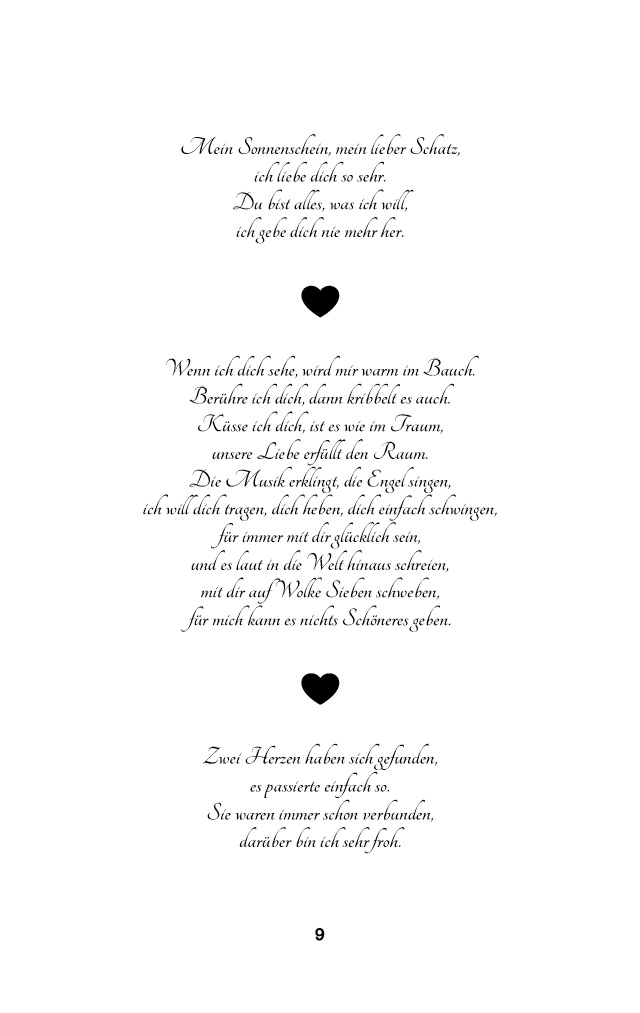 Mein Sonnenschein, mein lieber Schatz,
ich liebe dich so sehr.
Du bist alles, was ich will,
ich gebe dich nie mehr her.
Wenn ich dich sehe, wird mir warm im Bauch.
Berühre ich dich, dann kribbelt es auch.
Küsse ich dich, ist es wie im Traum,
unsere Liebe erfüllt den Raum.
Die Musik erklingt, die Engel singen,
ich will dich tragen, dich heben, dich einfach schwingen,
für immer mit dir glücklich sein,
und es laut in die Welt hinaus schreien,
mit dir auf Wolke Sieben schweben,
für mich kann es nichts Schöneres geben.
Zwei Herzen haben sich gefunden,
es passierte einfach so.
Sie waren immer schon verbunden,
darüber bin ich sehr froh.
9